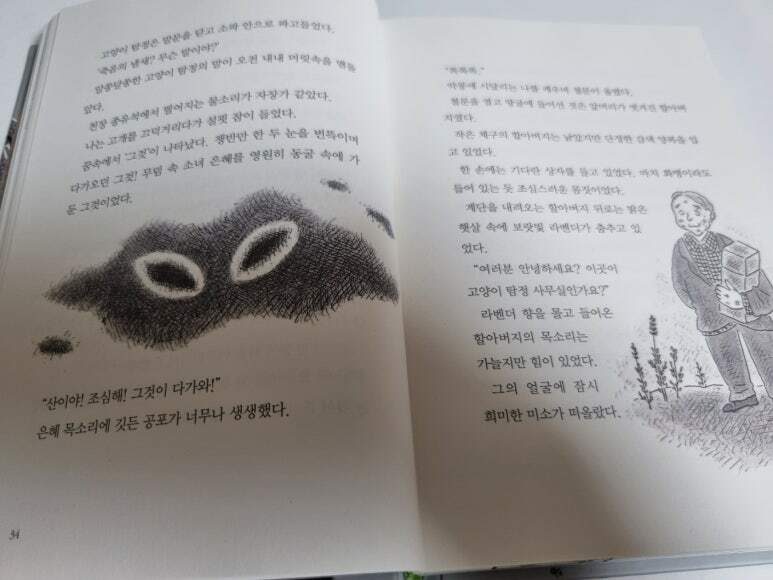 고양이 탐정은 말문을 닫고 소파 안으로 파고들었다.
'죽음의 냄새? 무슨 말이야?'
알쏭달쏭한 고양이 탐정의 말이 오전 내내 머릿속을 맴돌
았다.
천장 종유석에서 떨어지는 물소리가 자장가 같았다.
나는 고개를 끄덕거리다가 설핏 잠이 들었다. 쟁반만 한 두 눈을 번득이며
꿈속에서 '그것'이 나타났다.
다가오던 그것! 무덤 속 소녀 은혜를 영원히 동굴 속에 가
둔 그것이었다.
"산이야! 조심해! 그것이 다가와!"
은혜 목소리에 깃든 공포가 너무나 생생했다.
34
"똑똑똑."
악몽에 시달리는 나를 깨우며 철문이 울렸다.
철문을 열고 땅굴에 들어선 것은 앞머리가 벗겨진 할아버
지였다.
작은 체구의 할아버지는 낡았지만 단정한 갈색 양복을 입
고 있었다.
한 손에는 기다란 상자를 들고 있었다. 마치 화병이라도
들어 있는 듯 조심스러운 몸짓이었다.
계단을 내려오는 할아버지 뒤로는 밝은
햇살 속에 보랏빛 라벤더가 춤추고 있
었다.
"여러분 안녕하세요? 이곳이
고양이 탐정 사무실인가요?"
라벤더 향을 몰고 들어온
할아버지의 목소리는
가늘지만 힘이 있었다.
그의 얼굴에 잠시
희미한 미소가 떠올랐다.